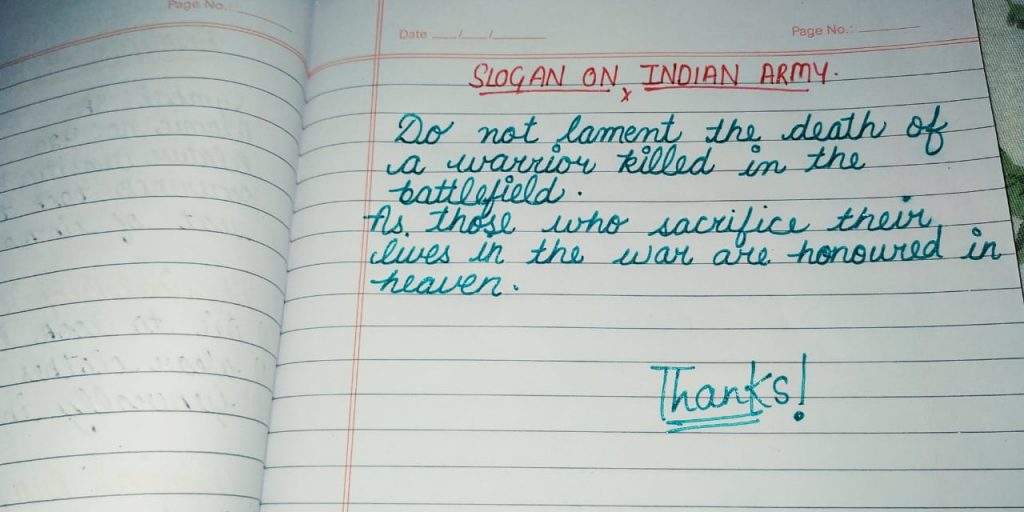 Page No.:
Date __/__/____
Page No.:
SLOGAN ON INDIAN ARMY.
x
Do not lament the death of
a warrior killed in the
battlefield.
As those who sacrifice their
lives in the war are honoured in
heaven.
Thanks!